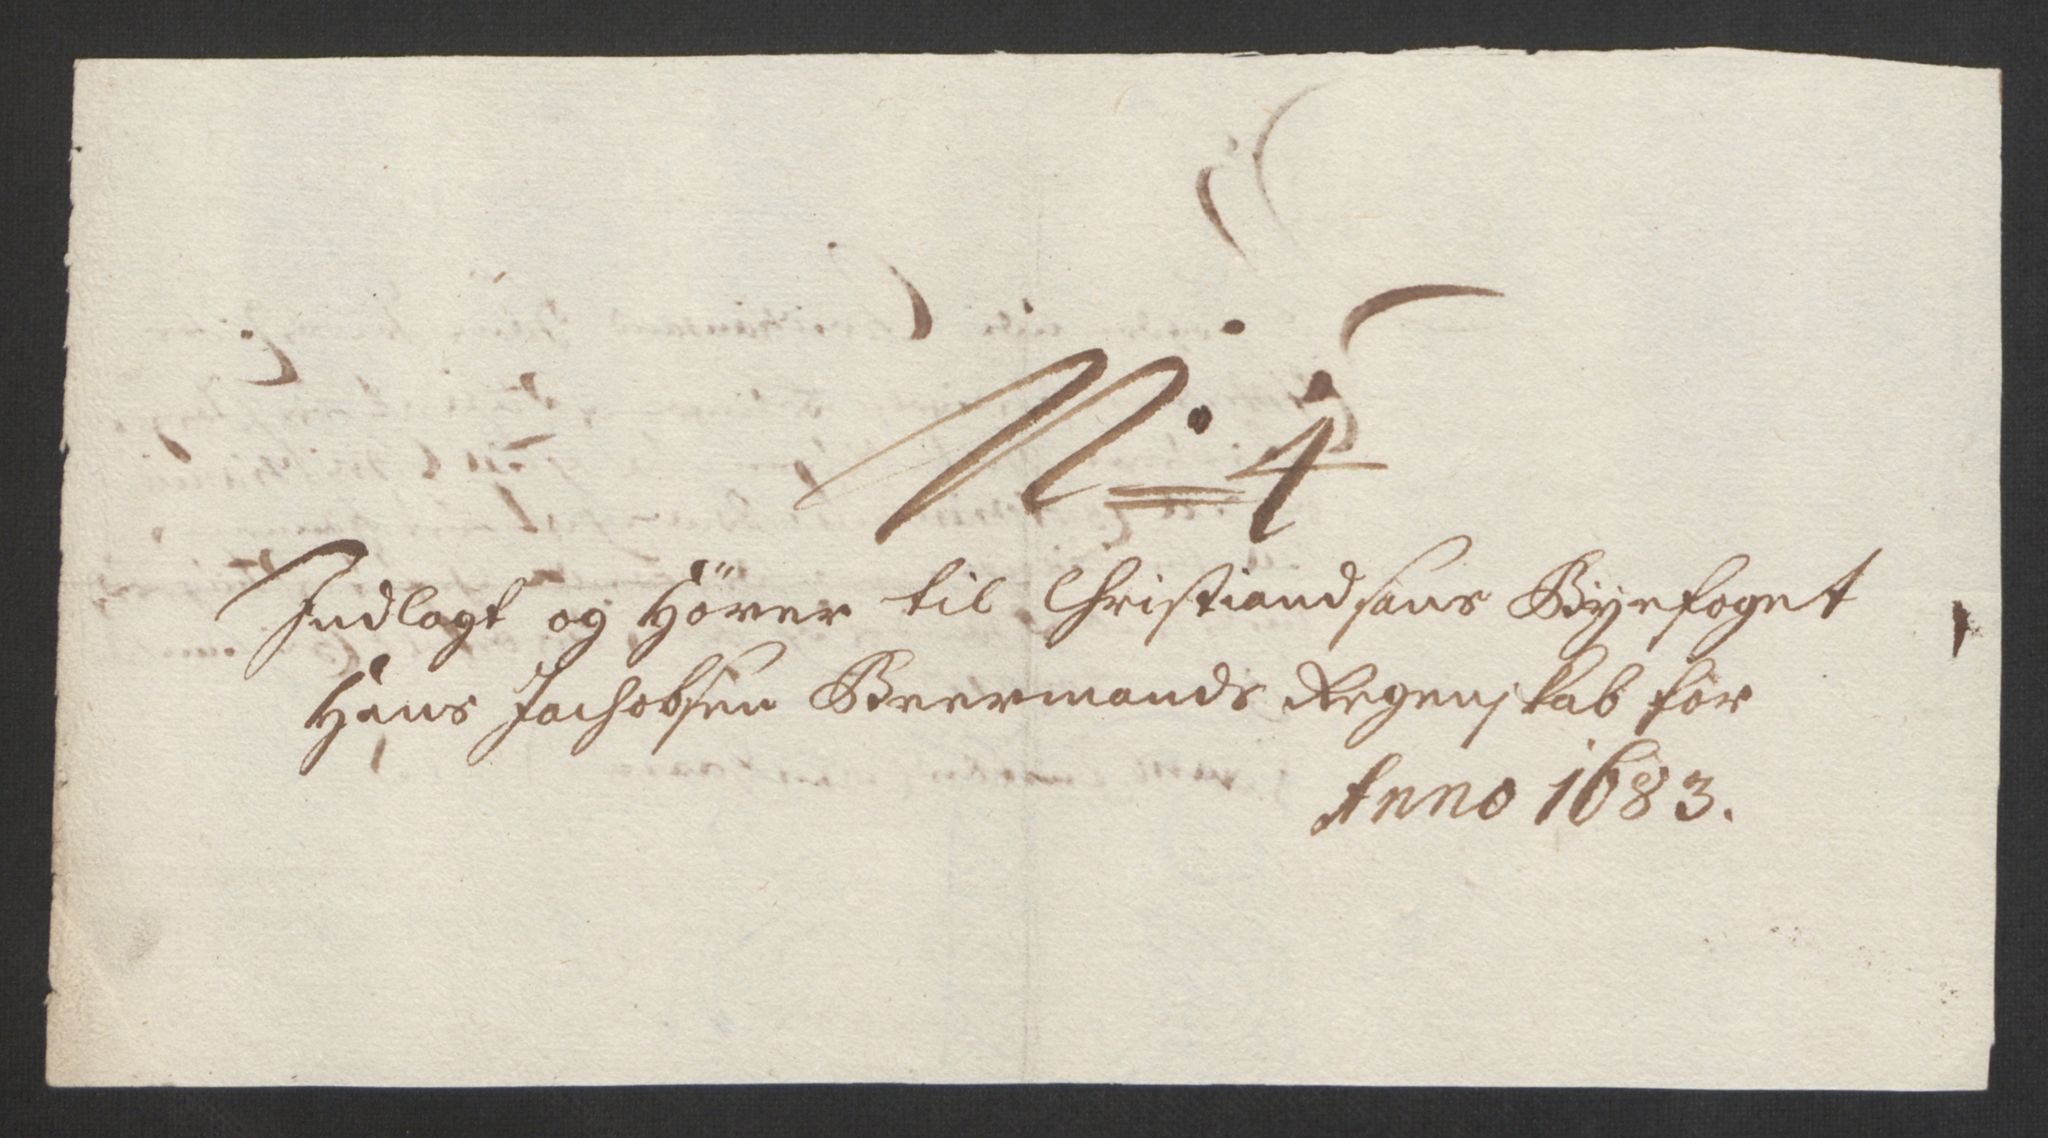 No: 4
Indlagt og Hörer til Christiandsans Byefoget
Hans Jachobsen Beermands Regenskab for
Anno 1683.